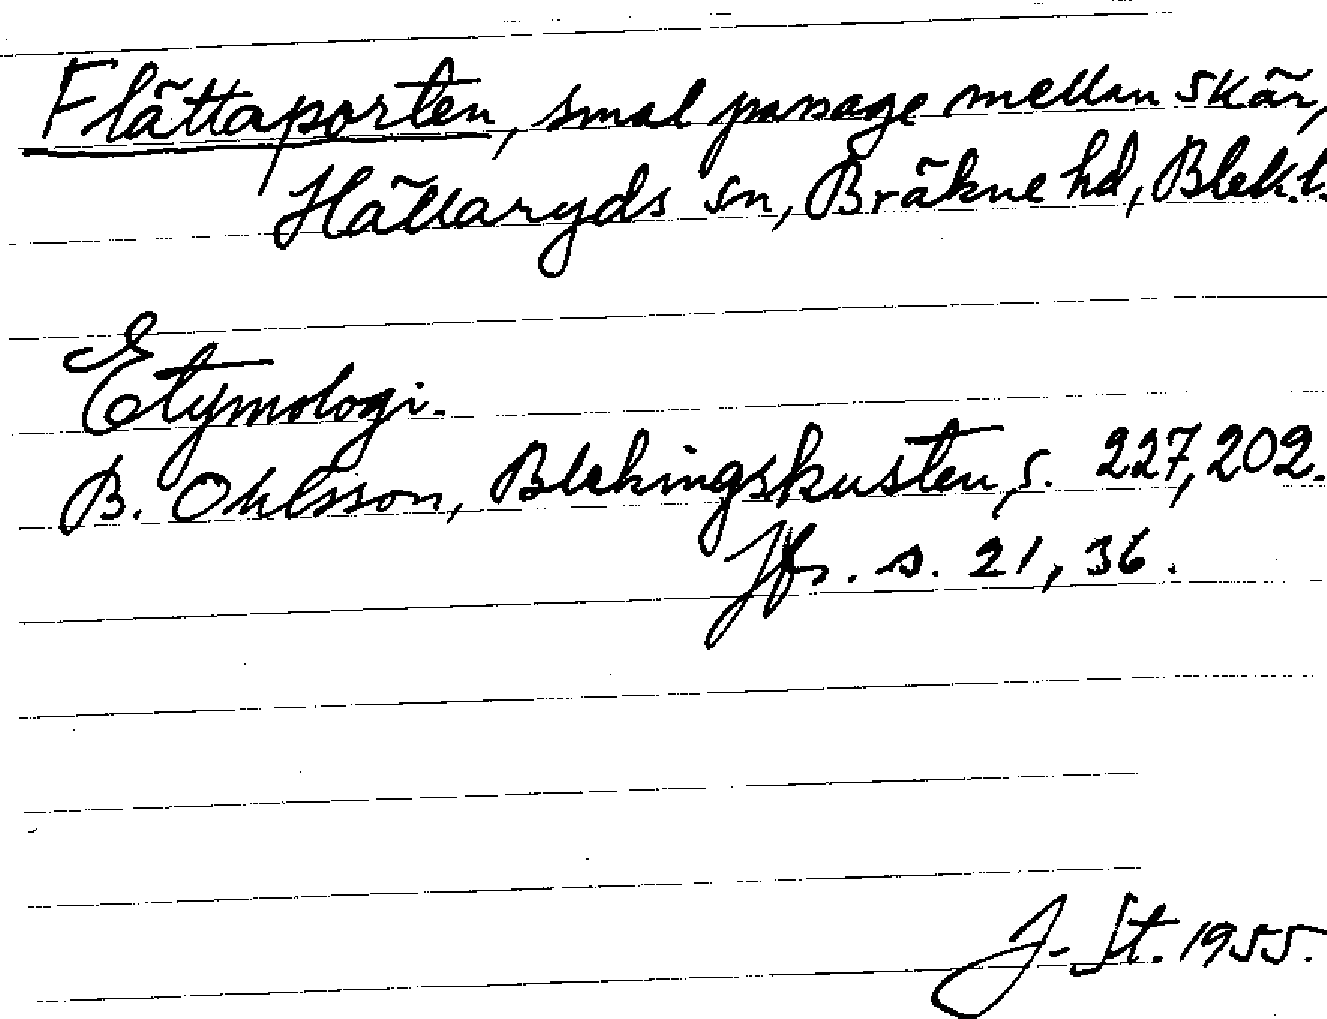 Flättaporten, smal passage mellan skär,
Hällaryds sn, Bräkne hd, Blek.l.
Etymologi.
B. Ohlsson, Blekingskusten, s. 227, 202.
Jfr. s. 21, 36.
J-St. 1955.